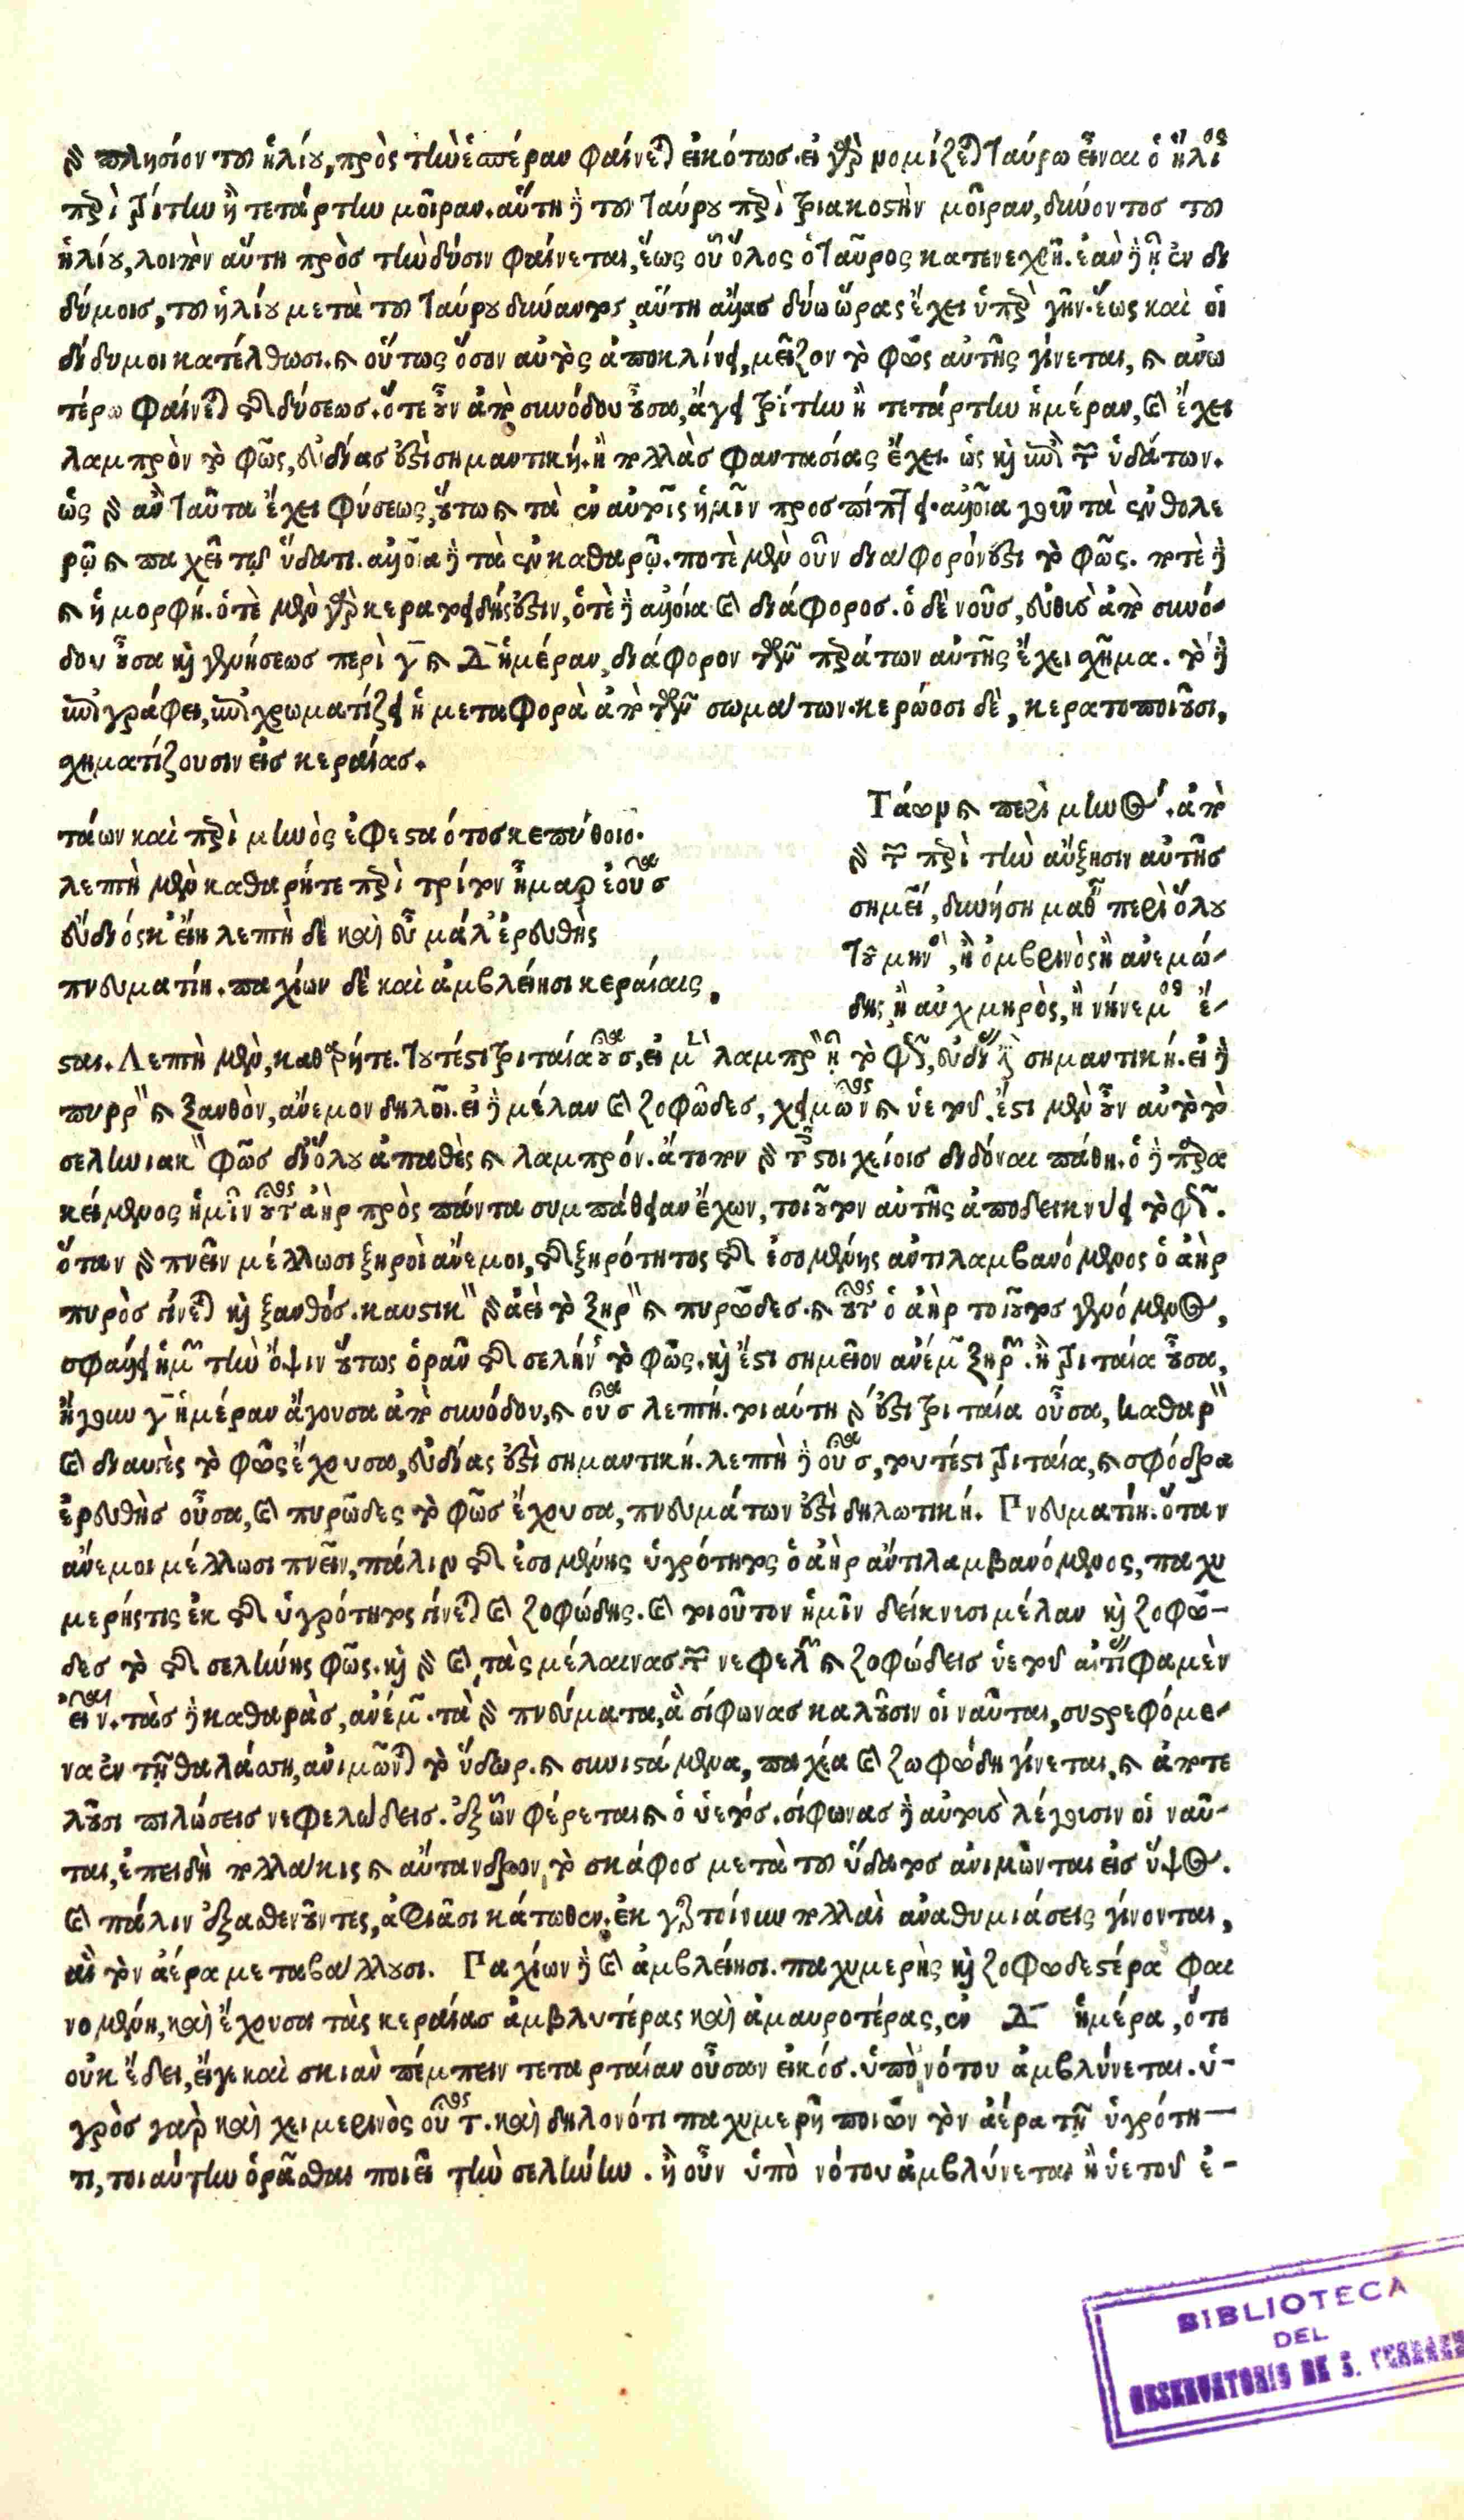 πλησίον τοῦ ἡλίου, πρὸς τὴν ἑσπέραν φαίνεται εἰκότως. εἰ γὰρ νομίζεται Ταύρω εἶναι ὁ ἥλιος
περὶ τρίτην ἢ τετάρτην μοῖραν. αὕτη δὲ τοῦ Ταύρου περὶ τριακοστὴν μοῖραν, δύνοντος τοῦ
ἡλίου, λοιπὸν αὕτη πρὸς τὴν δύσιν φαίνεται, ἕως οὗ ὅλος ὁ Ταῦρος κατενεχθῆ. ἐὰν δὲ ἦ ἐν δι
δύμοις, τοῦ ἡλίου μετὰ τοῦ Ταύρου δύναντος, αὕτη δύω ὥρας ἔχει ὑπὲρ γῆν. ἕως καὶ οἱ
δίδυμοι κατέλθωσι. καὶ οὕτως ὅσον αὐτὸς ἀποκλίνει, μεῖζον τὸ φῶς αὐτῆς γίνεται, καὶ ἀνω
τέρω φαίνεται τῆς δύσεως. ὅτε οὖν ἀπὸ συνόδου οὖσα, ἄγει τρίτην ἢ τετάρτην ἡμέραν, καὶ ἔχει
λαμπρὸν τὸ φῶς, εὐδίας ἐστὶ σημαντική. ἢ πολλὰς φαντασίας ἔχει. ὡς καὶ ἐπὶ τῶν ὑδάτων.
ὡς γὰρ ἂν ταῦτα ἔχει φύσεως, οὕτω καὶ τὰ ἐν αὐτοῖς ἡμῖν προσπίπτει. ἀλλοῖα γοῦν τὰ ἐν θολε
ρῷ καὶ παχεῖ τῷ ὕδατι. ἀλλοῖα δὲ τὰ ἐν καθαρῷ. ποτὲ μὲν οὖν διάφορόν ἐστι τὸ φῶς. ποτὲ δὲ
καὶ ἡ μορφή. ὁτὲ μὲν γὰρ κερατοειδής ἐστιν, ὁτὲ δὲ ἀλλοία καὶ διάφορος. ὁ δὲ νοῦς, εὐθὺς ἀπὸ συνό-
δου οὖσα καὶ γεννήσεως περὶ γ̄ καὶ Δ̄ ἡμέραν, διάφορον τῶν περάτων αὐτῆς ἔχει σχῆμα. τὸ δὲ
ἐπιγράφει, ἐπιχρωματίζει ἡ μεταφορὰ ἀπὸ τῶν σωμάτων. κερόωσι δὲ, κερατοποιοῦσι,
σχηματίζουσιν εἰς κεραίας.
τάων καὶ περὶ μηνὸς ἐφεσταότος κε πύθοιο.
λεπτὴ μὲν καθαρήτε περὶ τρίτον ἦμαρ ἐοῦσα
εὔδιός κ' εἴη λεπτὴ δὲ καὶ εὖ μάλ' ἐρευθὴς
πνευματίη. παχίων δὲ καὶ ἀμβλείησι κεραίαις.
Τάων καὶ περὶ μηνός. ἀπὸ
γὰρ τῶν περὶ τὴν αὔξησιν αὐτῆς
σημεί, δυνήση μαθ περὶ ὅλου
τοῦ μην, ἢ ὀμβρινὸς ἢ ἀνεμώ-
δης ἢ αὐχμηρὸς, ἢ νήνεμος ἔ-
σται. Λεπτὴ μὲν, καθαρήτε. τουτέστι τριταία οὖσα, εἰ μὲν λαμπρὸν ἦ τὸ φῶς, εὐδίας σημαντική. εἰ δὲ
πυρρὸν καὶ ξανθὸν, ἄνεμον δηλοῖ. εἰ δὲ μέλαν καὶ ζοφῶδες, χειμῶνας καὶ ὑετοῦ. ἔστι μὲν οὖν αὐτὸ τὸ
σεληνιακὸν φῶς δι' ὅλου ἀπαθὲς καὶ λαμπρόν. ἄτοπον γὰρ τοῖς στοιχείοις διδόναι πάθη. ὁ δὲ περα
κείμενος ἡμῖν οὗτος ἀὴρ πρὸς πάντα συμπάθειαν ἔχων, τοιοῦτον αὐτῆς ἀποδεικνύει τὸ φῶς.
ὅταν γὰρ πνεῖν μέλλωσι ξηροὶ ἄνεμοι, τῆς ξηρότητος τῆς ἐσομένης ἀντιλαμβανόμενος ὁ ἀὴρ
πυρὸς γίνεται καὶ ξανθός. καυστικὸν γὰρ ἀεὶ τὸ ξηρὸν καὶ πυρῶδες. καὶ οὗτος ὁ ἀὴρ τοιοῦτος γενόμενος,
σφάλλει ἡμῶν τὴν ὄψιν οὕτως ὁρᾶν τῆς σελήνης τὸ φῶς. καὶ ἔστι σημεῖον ἀνέμων ξηρῶν. ἢ τριταία οὖσα,
ἤγουν γ̄ ἡμέραν ἄγουσα ἀπὸ συνόδου, καὶ οὖσα λεπτή. τοιαύτη γάρ ἐστι τριταία οὖσα, καθαρὸν
καὶ διαυγὲς τὸ φῶς ἔχουσα, εὐδίας ἐστὶ σημαντική. λεπτὴ δὲ οὖσα, τουτέστι τριταία, καὶ σφόδρα
ἐρευθὴς οὖσα, καὶ πυρῶδες τὸ φῶς ἔχουσα, πνευμάτων ἐστὶ δηλωτική. Πνευματίη. ὅταν
ἄνεμοι μέλλωσι πνεῖν, πάλιν τῆς ἐσομένης ὑγρότητος ὁ ἀὴρ ἀντιλαμβανόμενος, παχυ
μερής τις ἐκ τῆς ὑγρότητος γίνεται καὶ ζοφώδης. καὶ τοιοῦτον ἡμῖν δείκνυσι μέλαν καὶ ζοφῶ-
δες τὸ τῆς σελήνης φῶς. καὶ γὰρ καὶ τὰς μέλαινας τῶν νεφελῶν καὶ ζοφώδεις ὑετοῦ αἰτίας φαμὲν
εἶναι. τὰς δὲ καθαρὰς, ἀνέμων. τὰ γὰρ πνεύματα, ἃ σίφωνας καλοῦσιν οἱ ναῦται, συστρεφόμε-
να ἐν τῇ θαλάσσῃ, ἀνιμῶνται τὸ ὕδωρ. καὶ συνιστάμενα, παχέα καὶ ζωφώδη γίνεται, καὶ ἀποτε
λοῦσι πιλώσεις νεφελώδεις. ἐξ ὧν φέρεται καὶ ὁ ὑετός. σίφωνας δὲ αὐτοὺς λέγουσιν οἱ ναῦ-
ται, ἐπειδὴ πολλάκις καὶ αὔτανδρον τὸ σκάφος μετὰ τοῦ ὕδατος ἀνιμῶνται εἰς ὕψος.
καὶ πάλιν ἐξασθενοῦντες, ἀφιᾶσι κάτωθεν. ἐκ γῆς τοίνυν πολλαὶ ἀναθυμιάσεις γίνονται,
αἳ τὸν ἀέρα μεταβάλλουσι. Παχίων δὲ καὶ ἀμβλείησι. παχυμερὴς καὶ ζοφωδεστέρα φαι
νομένη, καὶ ἔχουσα τὰς κεραίας ἀμβλυτέρας καὶ ἀμαυροτέρας, ἐν Δ̄ ἡμέρα, ὅτε
οὐκ ἔδει, εἴγε καὶ σκιὰν πέμπειν τεταρταίαν οὖσαν εἰκός. ὑπὸ νότου ἀμβλύνεται. ὑ-
γρὸς γὰρ καὶ χειμερινὸς οὗτος. καὶ δηλονότι παχυμερῆ ποιῶν τὸν ἀέρα τῇ ὑγρότη-
τι, τοιαύτην ὁρᾶσθαι ποιεῖ τὴν σελήνην. ἢ οὖν ὑπὸ νότου ἀμβλύνεται ἢ ὑετοῦ ἐ-
BIBLIOTECA
DEL
OBSERVATORIO DE S.